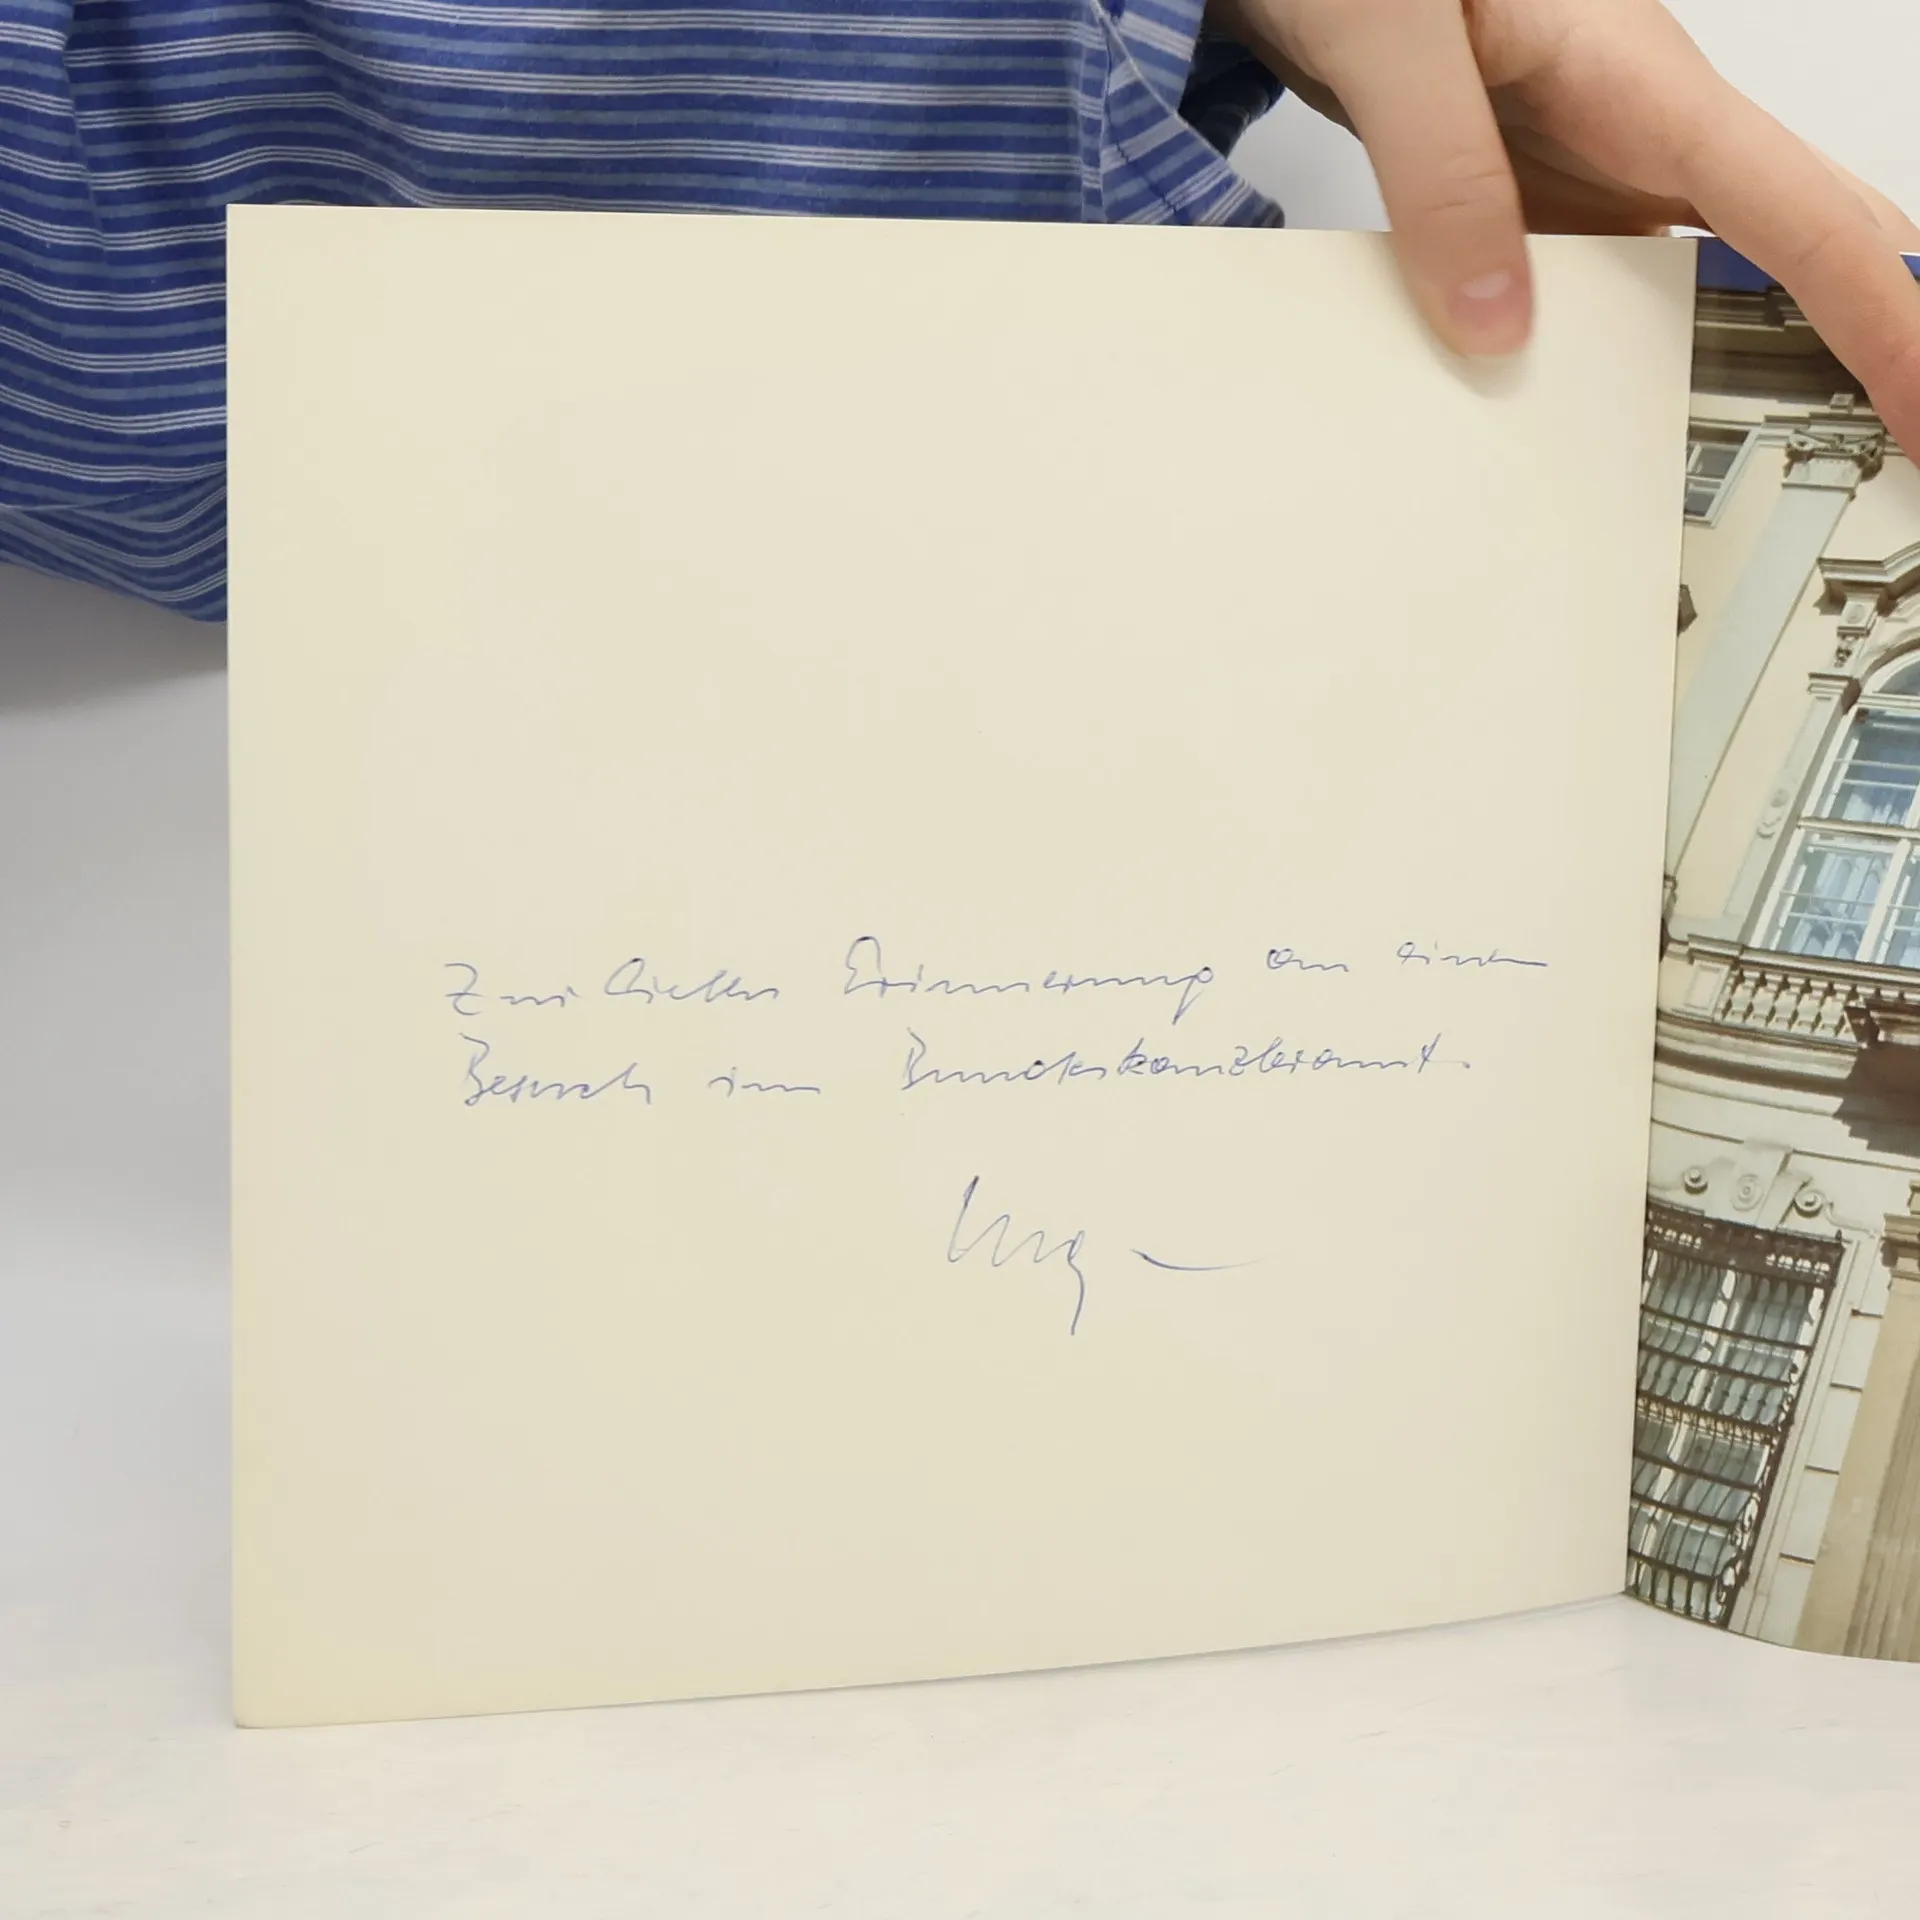 Zur lieben Erinnerung an einen
Besuch im Bundeskanzleramt.